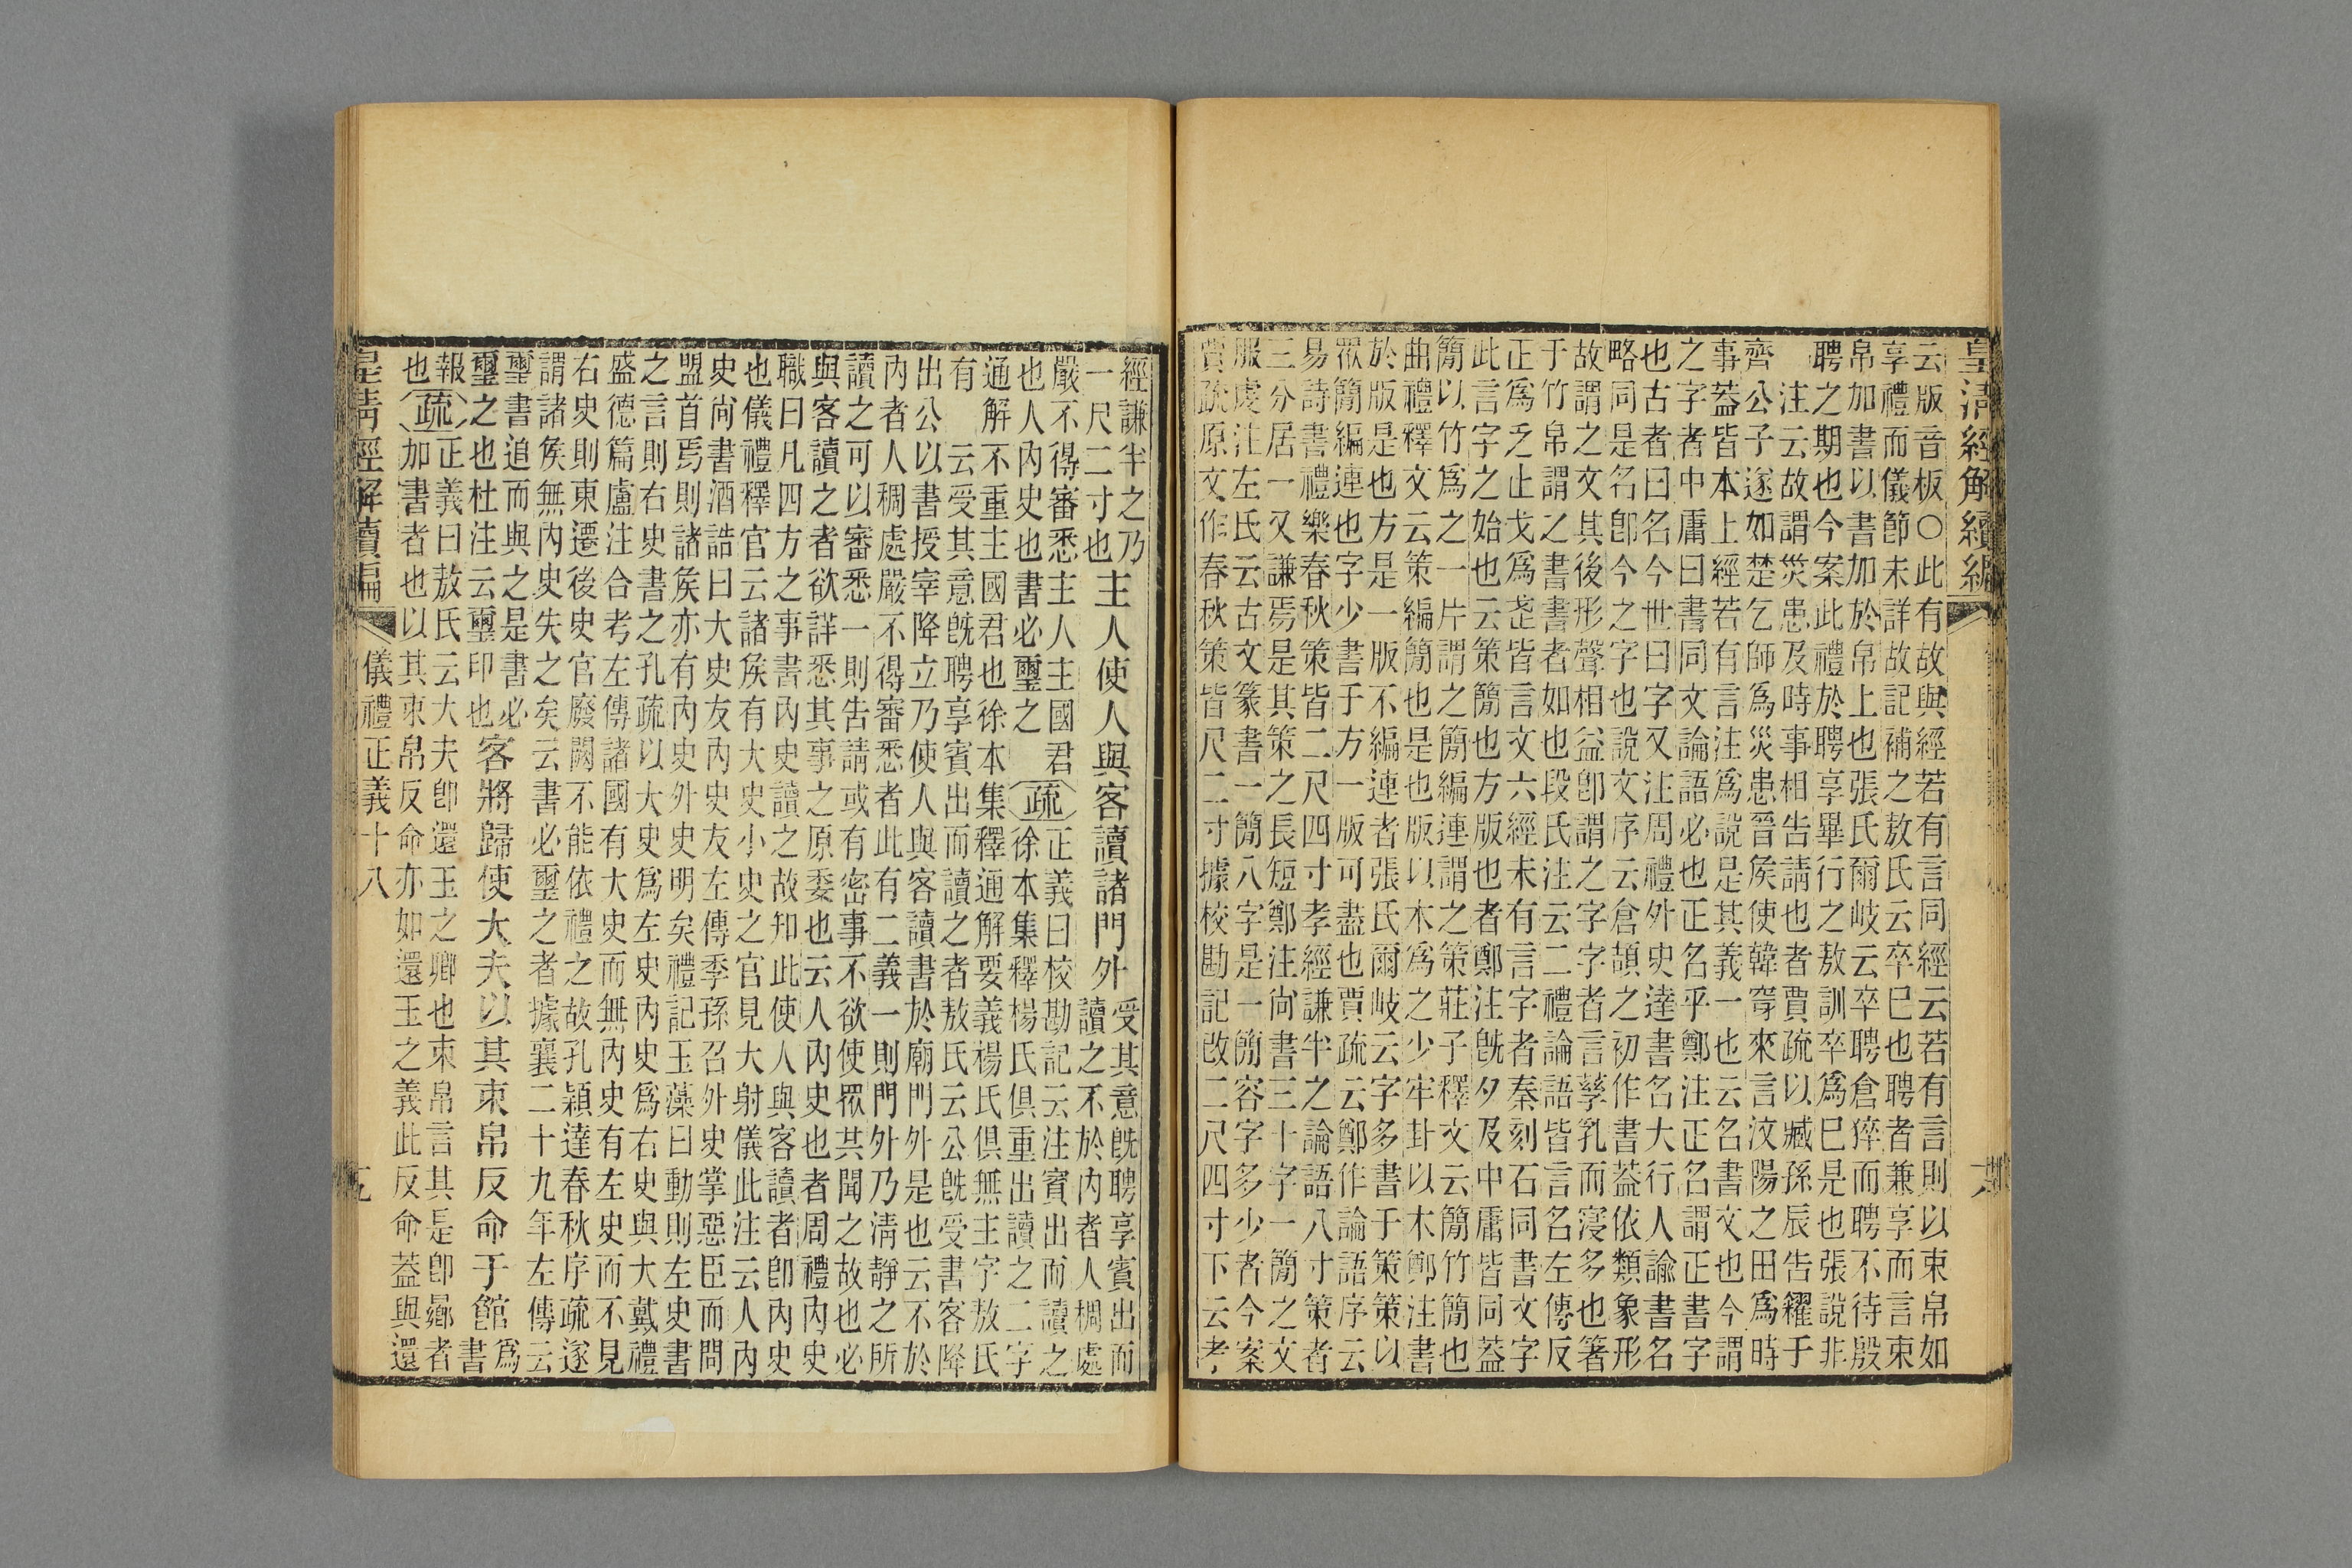 皇清經解續編
云版音板○此有故與經若有言同經云若有言則以束帛如
享禮而儀節未詳故記補之敖氏云卒巳也聘者兼享而言束
帛加書以書加於帛上也張氏爾岐云卒聘倉猝而聘不待殷
聘之期也今案此禮於聘享畢行之敖訓卒爲巳是也張說非
注云故謂災患及時事相告請也者賈疏以臧孫辰告糴于
齊公子遂如楚乞師爲災患晉侯使韓穿來言汶陽之田爲時
事蓋皆本上經若有言注爲說是其義一也云名書文也今謂
之字者中庸曰書同文論語必也正名乎鄭注正名謂正書字
也古者曰名今世曰字又注周禮外史達書名大行人諭書名
略同是名卽今之字也說文序云倉頡之初作書蓋依類象形
故謂之文其後形聲相益卽謂之字字者言孳乳而寖多也箸
于竹帛謂之書書者如也段氏注云二禮論語皆言名左傳反
正爲乏止戈爲武皆言文六經未有言字者秦刻石同書文字
此言字之始也云策簡也方版也者鄭注旣夕及中庸皆同蓋
簡以竹爲之一片謂之簡編連謂之策莊子釋文云簡竹簡也
曲禮釋文云策編簡也是也版以木爲之少牢卦以木鄭注書
於版是也方是一版不編連者張氏爾岐云字多書于策策以
眾簡編連也字少書于方一版可盡也賈疏云鄭作論語序云
易詩書禮樂春秋策皆二尺四寸孝經謙半之論語八寸策者
三分居一又謙焉是其策之長短鄭注尚書三十字一簡之文
服虔注左氏云古文篆書一簡八字是一簡容字多少者今案
賈疏原文作春秋策皆尺二寸據校勘記改二尺四寸下云孝
經謙半之乃
一尺二寸也
主人使人與客讀諸門外
受其意旣聘享賓出而
讀之不於內者人稠處
嚴不得審悉主人主國君
也人內史也書必璽之
疏
正義曰校勘記云注賓出而讀之
徐本集釋楊氏俱重出讀之二字
通解不重主國君也徐本集釋通解要義楊氏俱無主字敖氏
有 云受其意旣聘享賓出而讀之者敖氏云公旣受書客降
出公以書授宰降立乃使人與客讀書於廟門外是也云不於
內者人稠處嚴不得審悉者此有二義一則門外乃清靜之所
讀之可以審悉一則告請或有密事不欲使眾共聞之故也必
與客讀之者欲詳悉其事之原委也云人內史也者周禮內史
職曰凡四方之事書內史讀之故知此使人與客讀者卽內史
也儀禮釋官云諸侯有大史小史之官見大射儀此注云人內
史尚書酒誥曰大史友內史友左傳季孫召外史掌惡臣而問
盟首焉則諸侯亦有內史外史明矣禮記玉藻曰動則左史書
之言則右史書之孔疏以大史爲左史內史爲右史與大戴禮
盛德篇盧注合考左傳諸國有大史而無內史有左史而不見
右史則東遷後史官廢闕不能依禮之故孔穎達春秋序疏遂
謂諸侯無內史失之矣云書必璽之者據襄二十九年左傳云
璽書追而與之是書必
璽之也杜注云璽印也
客將歸使大夫以其束帛反命于館
爲
書
報
也
疏
正義曰敖氏云大夫卽還玉之卿也束帛言其是卽曏者
加書者也以其束帛反命亦如還玉之義此反命蓋與還
皇清經解續編
儀禮正義十八
五